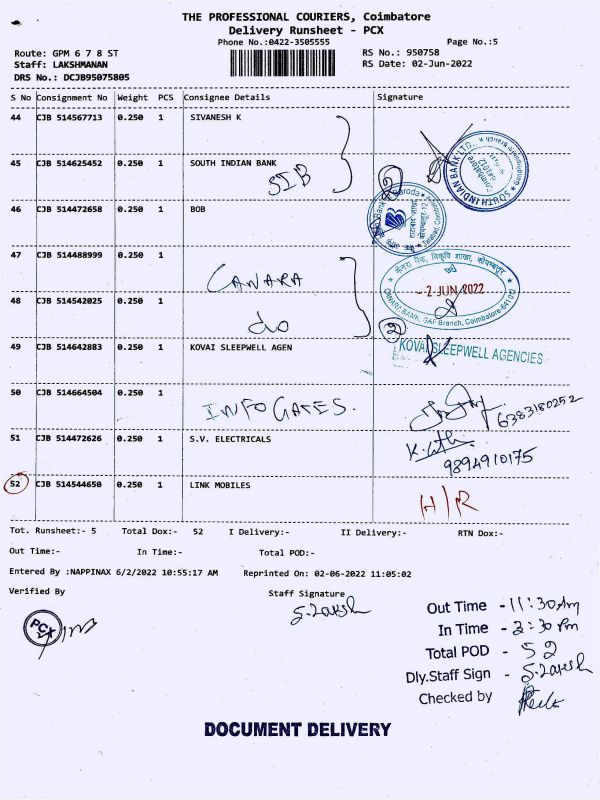 THE PROFESSIONAL COURIERS, Coimbatore
Delivery Runsheet - PCX
Phone No.:0422-3505555
Page No.:5
Route: GPM 6 7 8 ST
RS No.: 950758
Staff: LAKSHMANAN
RS Date: 02-Jun-2022
DRS No.: DCJB95075805
S No Consignment No Weight PCS Consignee Details Signature
44 CJB 514567713 0.250 1 SIVANESH K
45 CJB 514625452 0.250 1 SOUTH INDIAN BANK
SIB
2
SOUTH INDIAN BANK LTD.
Coimbatore
641012
46 CJB 514472658 0.250 1 BOB
47 CJB 514488999 0.250 1
CANARA
केनरा बैंक, विकृवि शाखा, कोयम्बत्तूर
- 2 JUN 2022
CANARA BANK, SAF Branch, Coimbatore-641 012
48 CJB 514542025 0.250 1
do
2
49 CJB 514642883 0.250 1 KOVAI SLEEPWELL AGEN
KOVAI SLEEPWELL AGENCIES
50 CJB 514664504 0.250 1
INFO GATES.
6383180252
51 CJB 514472626 0.250 1 S.V. ELECTRICALS
9894910175
52 CJB 514544650 0.250 1 LINK MOBILES
H/R
Tot. Runsheet:- 5 Total Dox:- 52 I Delivery:- II Delivery:- RTN Dox:-
Out Time:- In Time:- Total POD:-
Entered By :NAPPINAX 6/2/2022 10:55:17 AM Reprinted On: 02-06-2022 11:05:02
Verified By
Staff Signature
PCX
Out Time - 11:30 Am
In Time - 3:30 Pm
Total POD - 52
Dly.Staff Sign -
Checked by
DOCUMENT DELIVERY